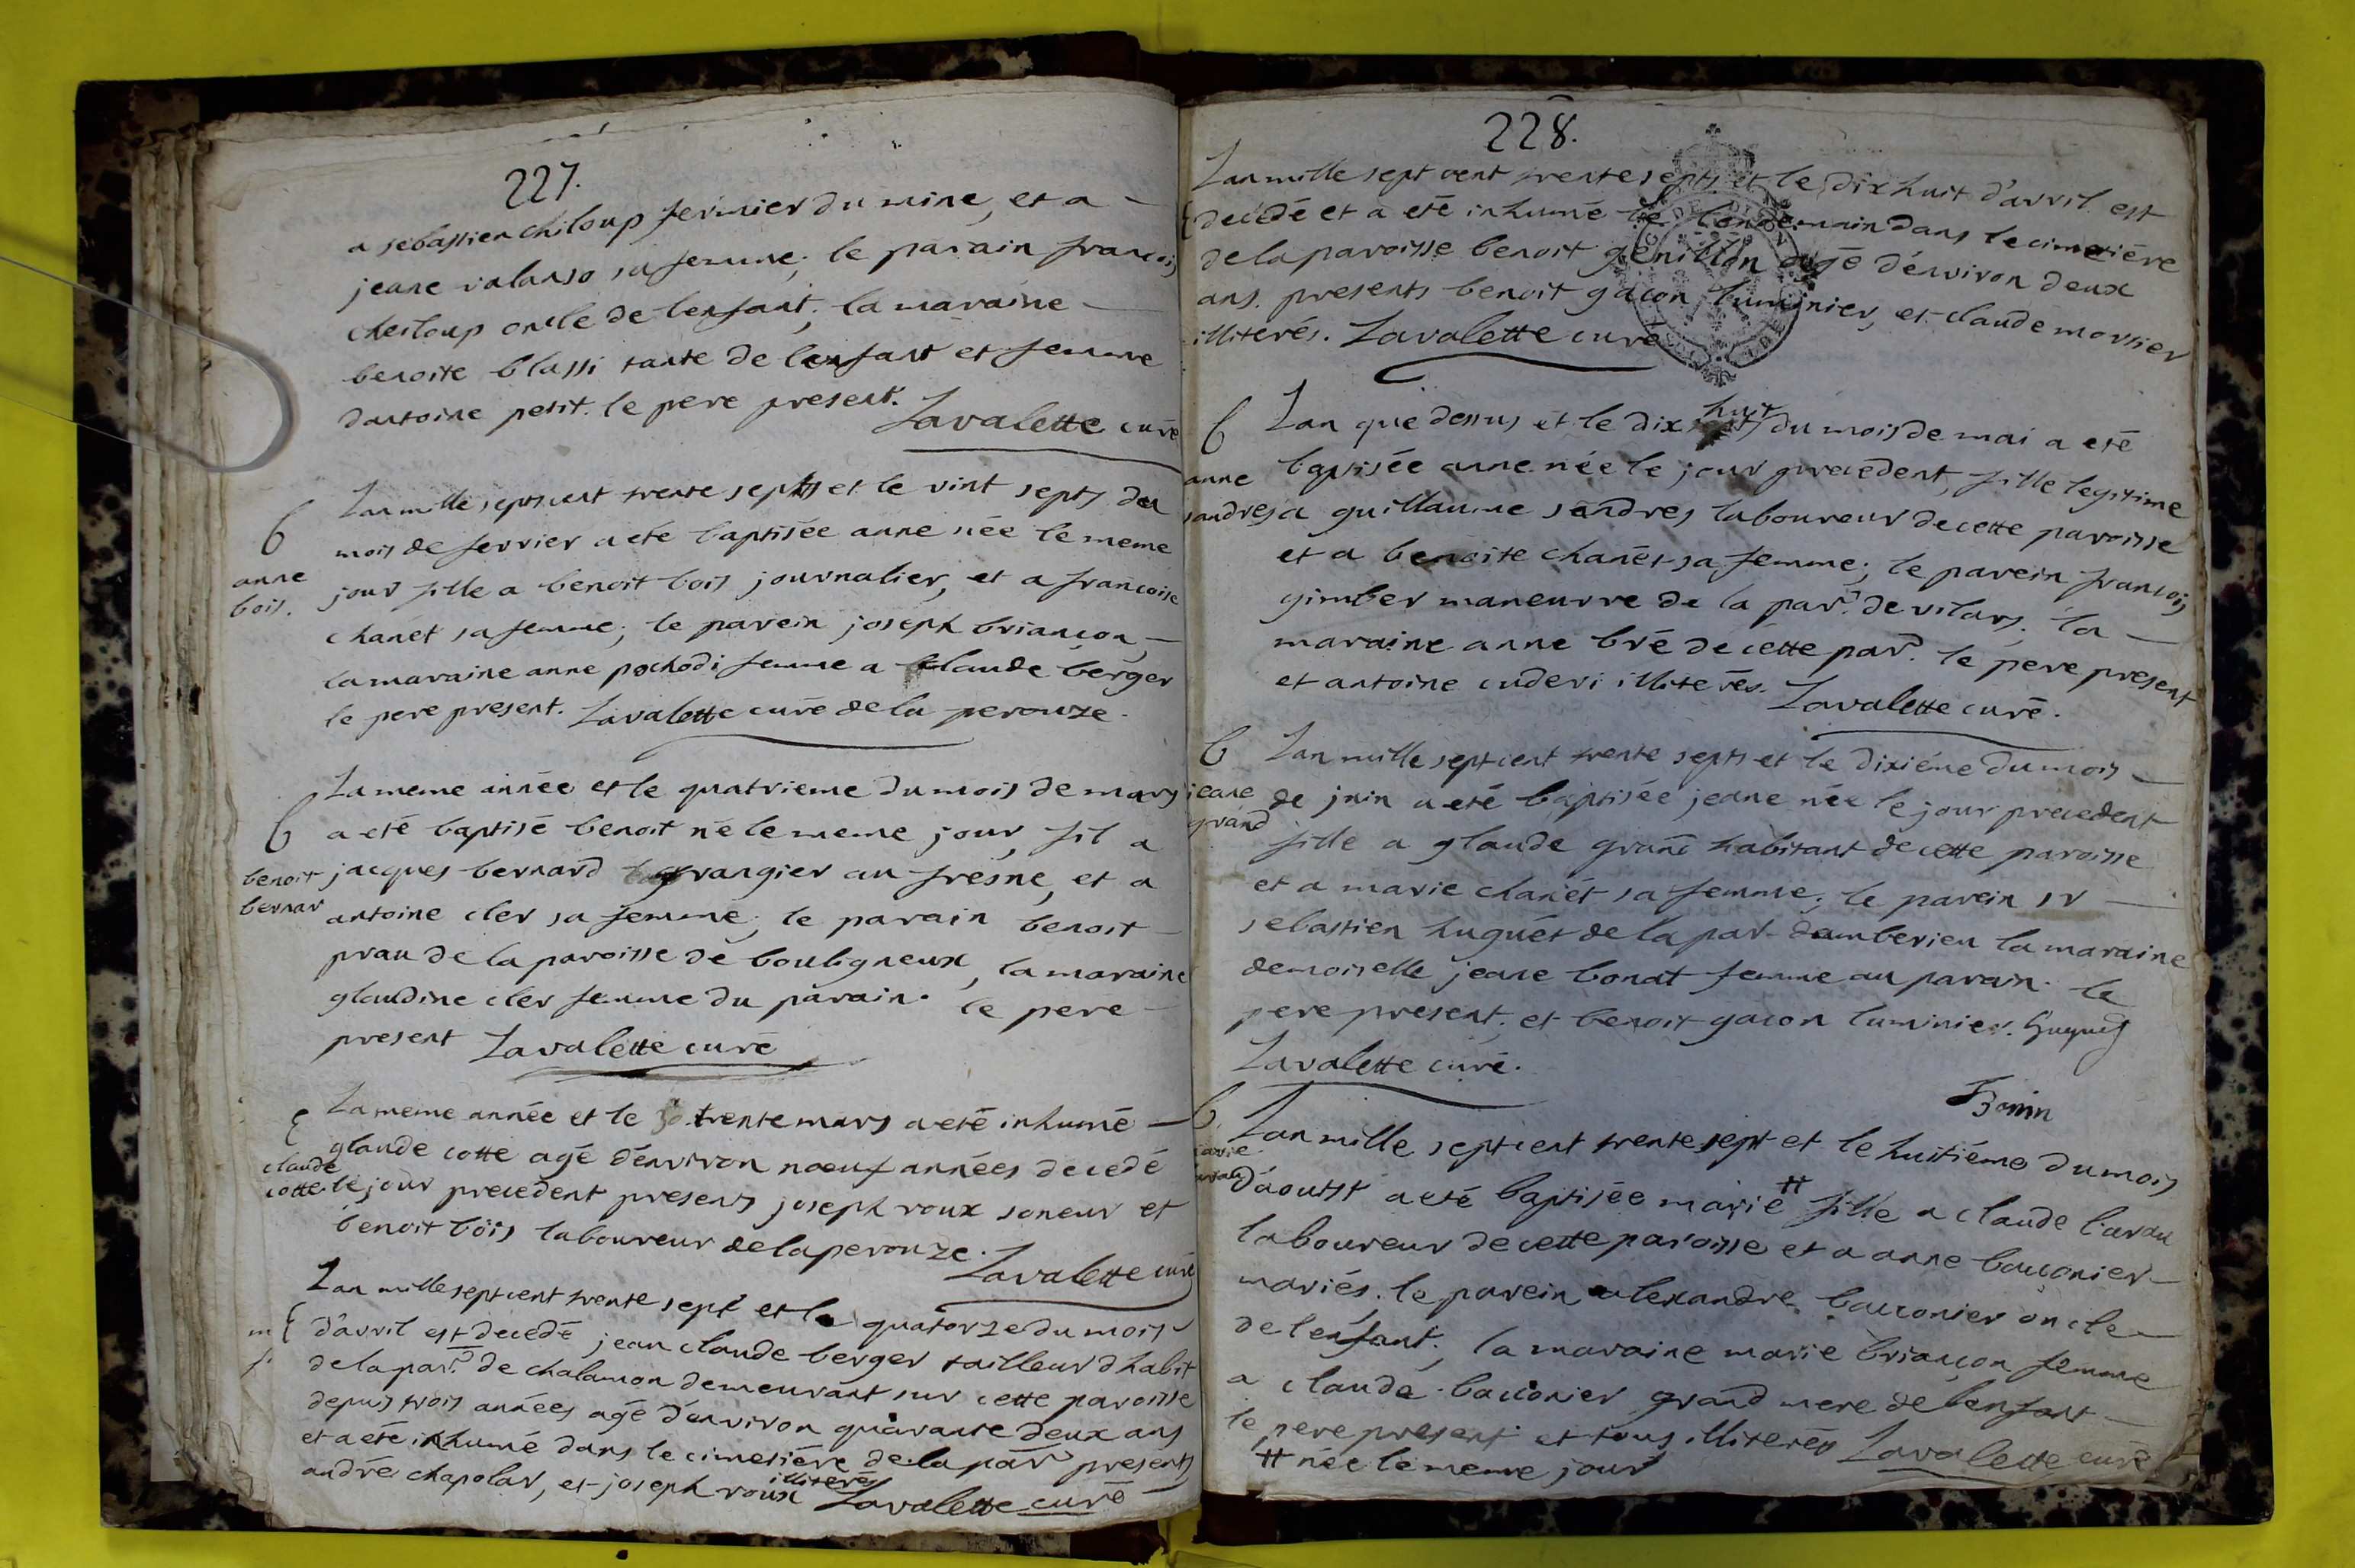 227.
a sebastien chiloup fermier du mine, et a
jeane valanso sa femme; le parain francois
chesloup oncle de lenfant; la maraine
benoite blassi tante de lenfant et femme
dantoine petit. le pere present.
Lavalette curé
Lan mille sept cent trente septs et le vint septs du
6
mois de fevrier a eté baptisée anne née le meme
anne
bois.
jour fille a benoit bois journalier, et a francoise
chanét sa femme; le parein joseph briançon,
la maraine anne pochodi femme a claude berger
le pere present. Lavalette curé de la perouze.
La meme année et le quatrieme du mois de mars
6
a eté baptisé benoit né le meme jour, fil a
benoit
bernar
jacques bernard grangier au fresne, et a
antoine cler sa femme; le parain benoit
prau de la paroisse de bouligneux, la maraine
glaudine cler femme du parain. le pere
present Lavalette curé
La meme année et le trente mars a eté inhumé
claude
cotte
glaude cotte agé d'environ noeuf années decedé
le jour precedent presents joseph roux soneur et
benoit bois laboureur de la perouze.
Lavalette curé
Lan mille sept cent trente sept et le quatorze du mois
m
d'avril est decedé jean claude berger tailleur d'habit
de la par. de chalamon demeurant sur cette paroisse
depuis trois années agé d'environ quarante deux ans
et a été inhumé dans le cimetiére de la par presents
andré chapolar, et joseph roux illiterés Lavalette curé
228.
Lan mille sept cent trente septs et le dix huit d'avril est
decedé et a eté inhumé le lendemain dans le cimetiére
de la paroisse benoit genillon agé d'environ deux
ans. presents benoit gacon luminier, et claude morsier
illiterés. Lavalette curé
6
Lan que dessus et le dix huit du mois de mai a eté
anne
sandres
baptisée anne née le jour precedent, fille legitime
a guillaume sandres laboureur de cette paroisse
et a benoite chanét sa femme; le parein francois
gimber maneuvre de la par. de vilars. la
maraine anne bré de cette par. le pere present
et antoine cuderi illiterés. Lavalette curé.
6
Lan mille sept cent trente septs et le dixiéme du mois
jeane
grand
de juin a eté baptisée jeane née le jour precedent
fille a glaude grand habitant de cette paroisse
et a marie chanét sa femme; le parein sr
sebastien huguét de la par damberieu la maraine
demoiselle jeane bonat femme au parain. le
pere present. et benoit gacon luminier. huguet
Lavalette curé.
Bonin
6
Lan mille sept cent trente sept et le huitiéme du mois
d'aoust a eté baptisée marie # fille a claude
laboureur de cette paroisse et a anne bacconier
mariés. le parein alexandre bacconier oncle
de lenfant; la maraine marie briançon femme
a claude bacconier grand mere de lenfant
le pere present et tous illiterés Lavalette curé
# née le meme jour